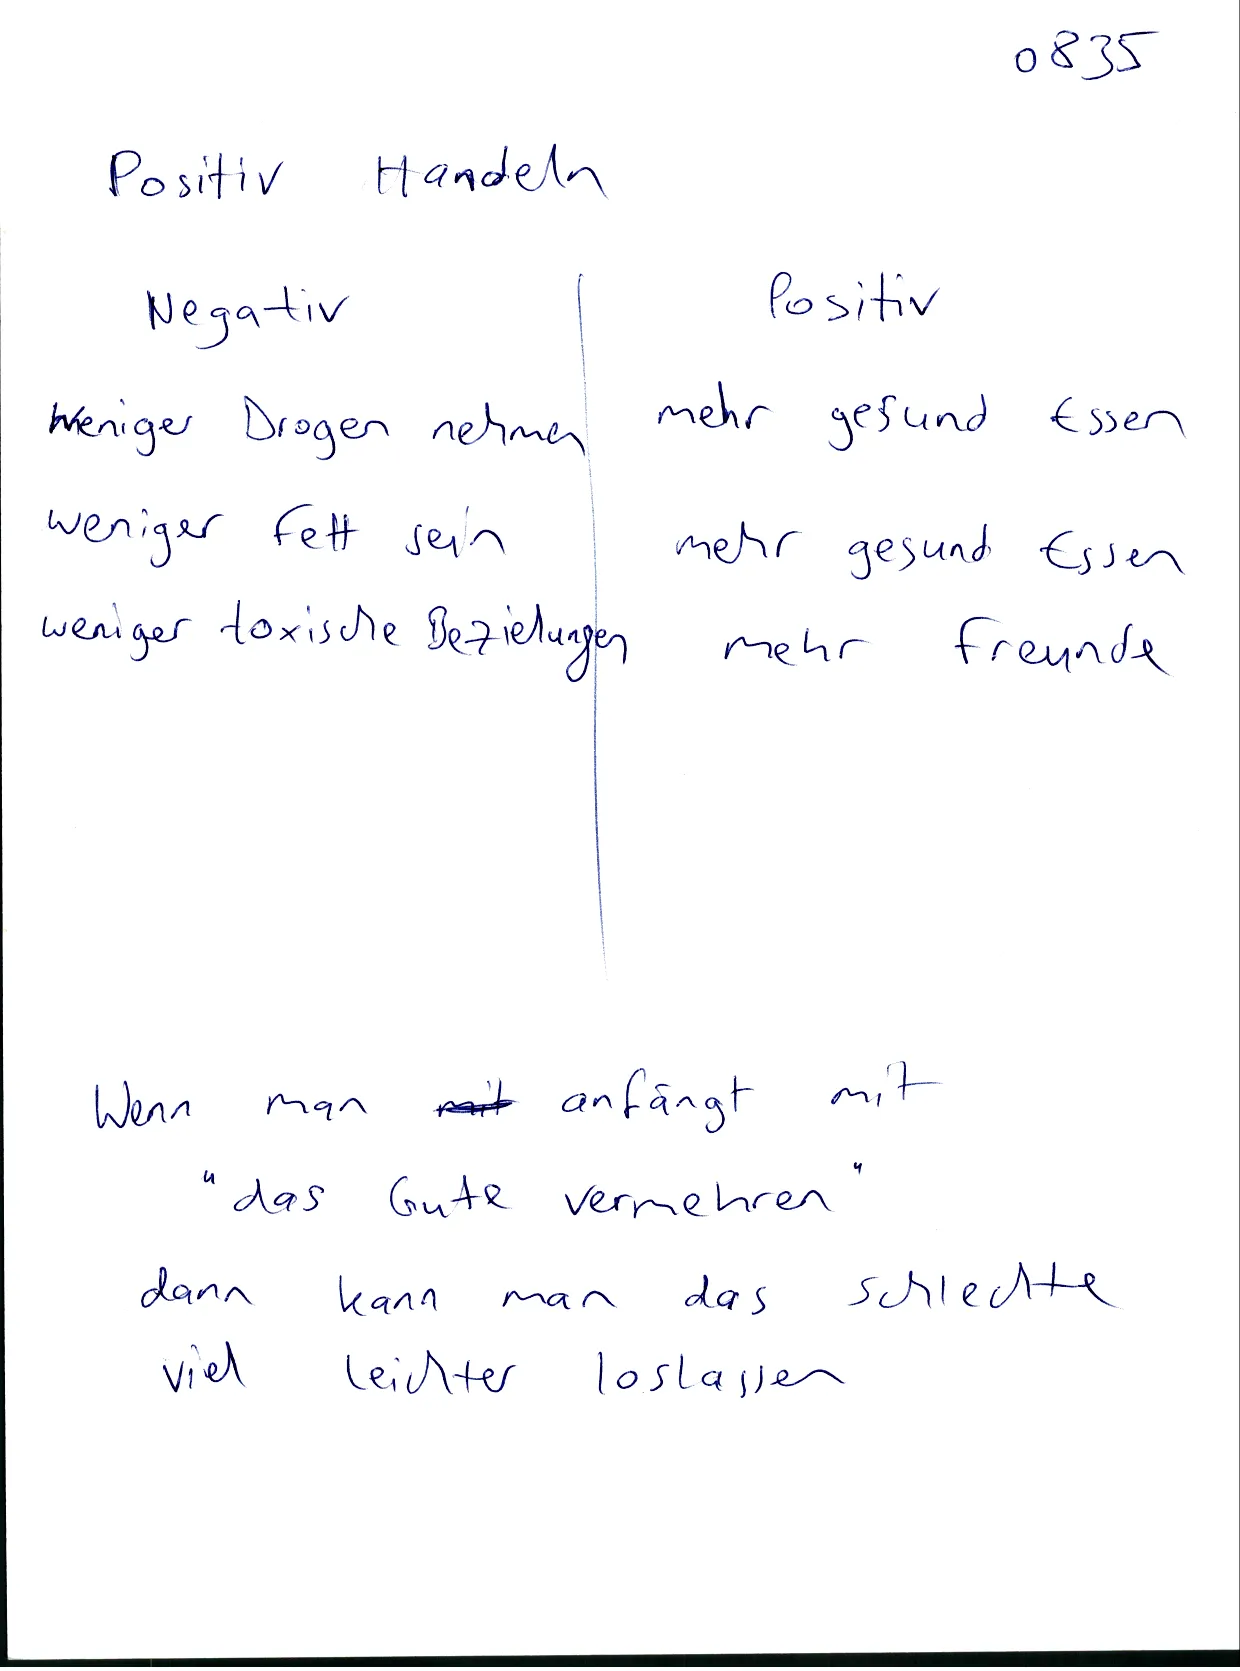 0835
Positiv Handeln
Negativ Positiv
Weniger Drogen nehmen mehr gesund Essen
weniger Fett sein mehr gesund Essen
weniger toxische Beziehungen mehr Freunde
Wenn man mit anfängt mit
"das Gute vermehren"
dann kann man das schlechte
viel leichter loslassen